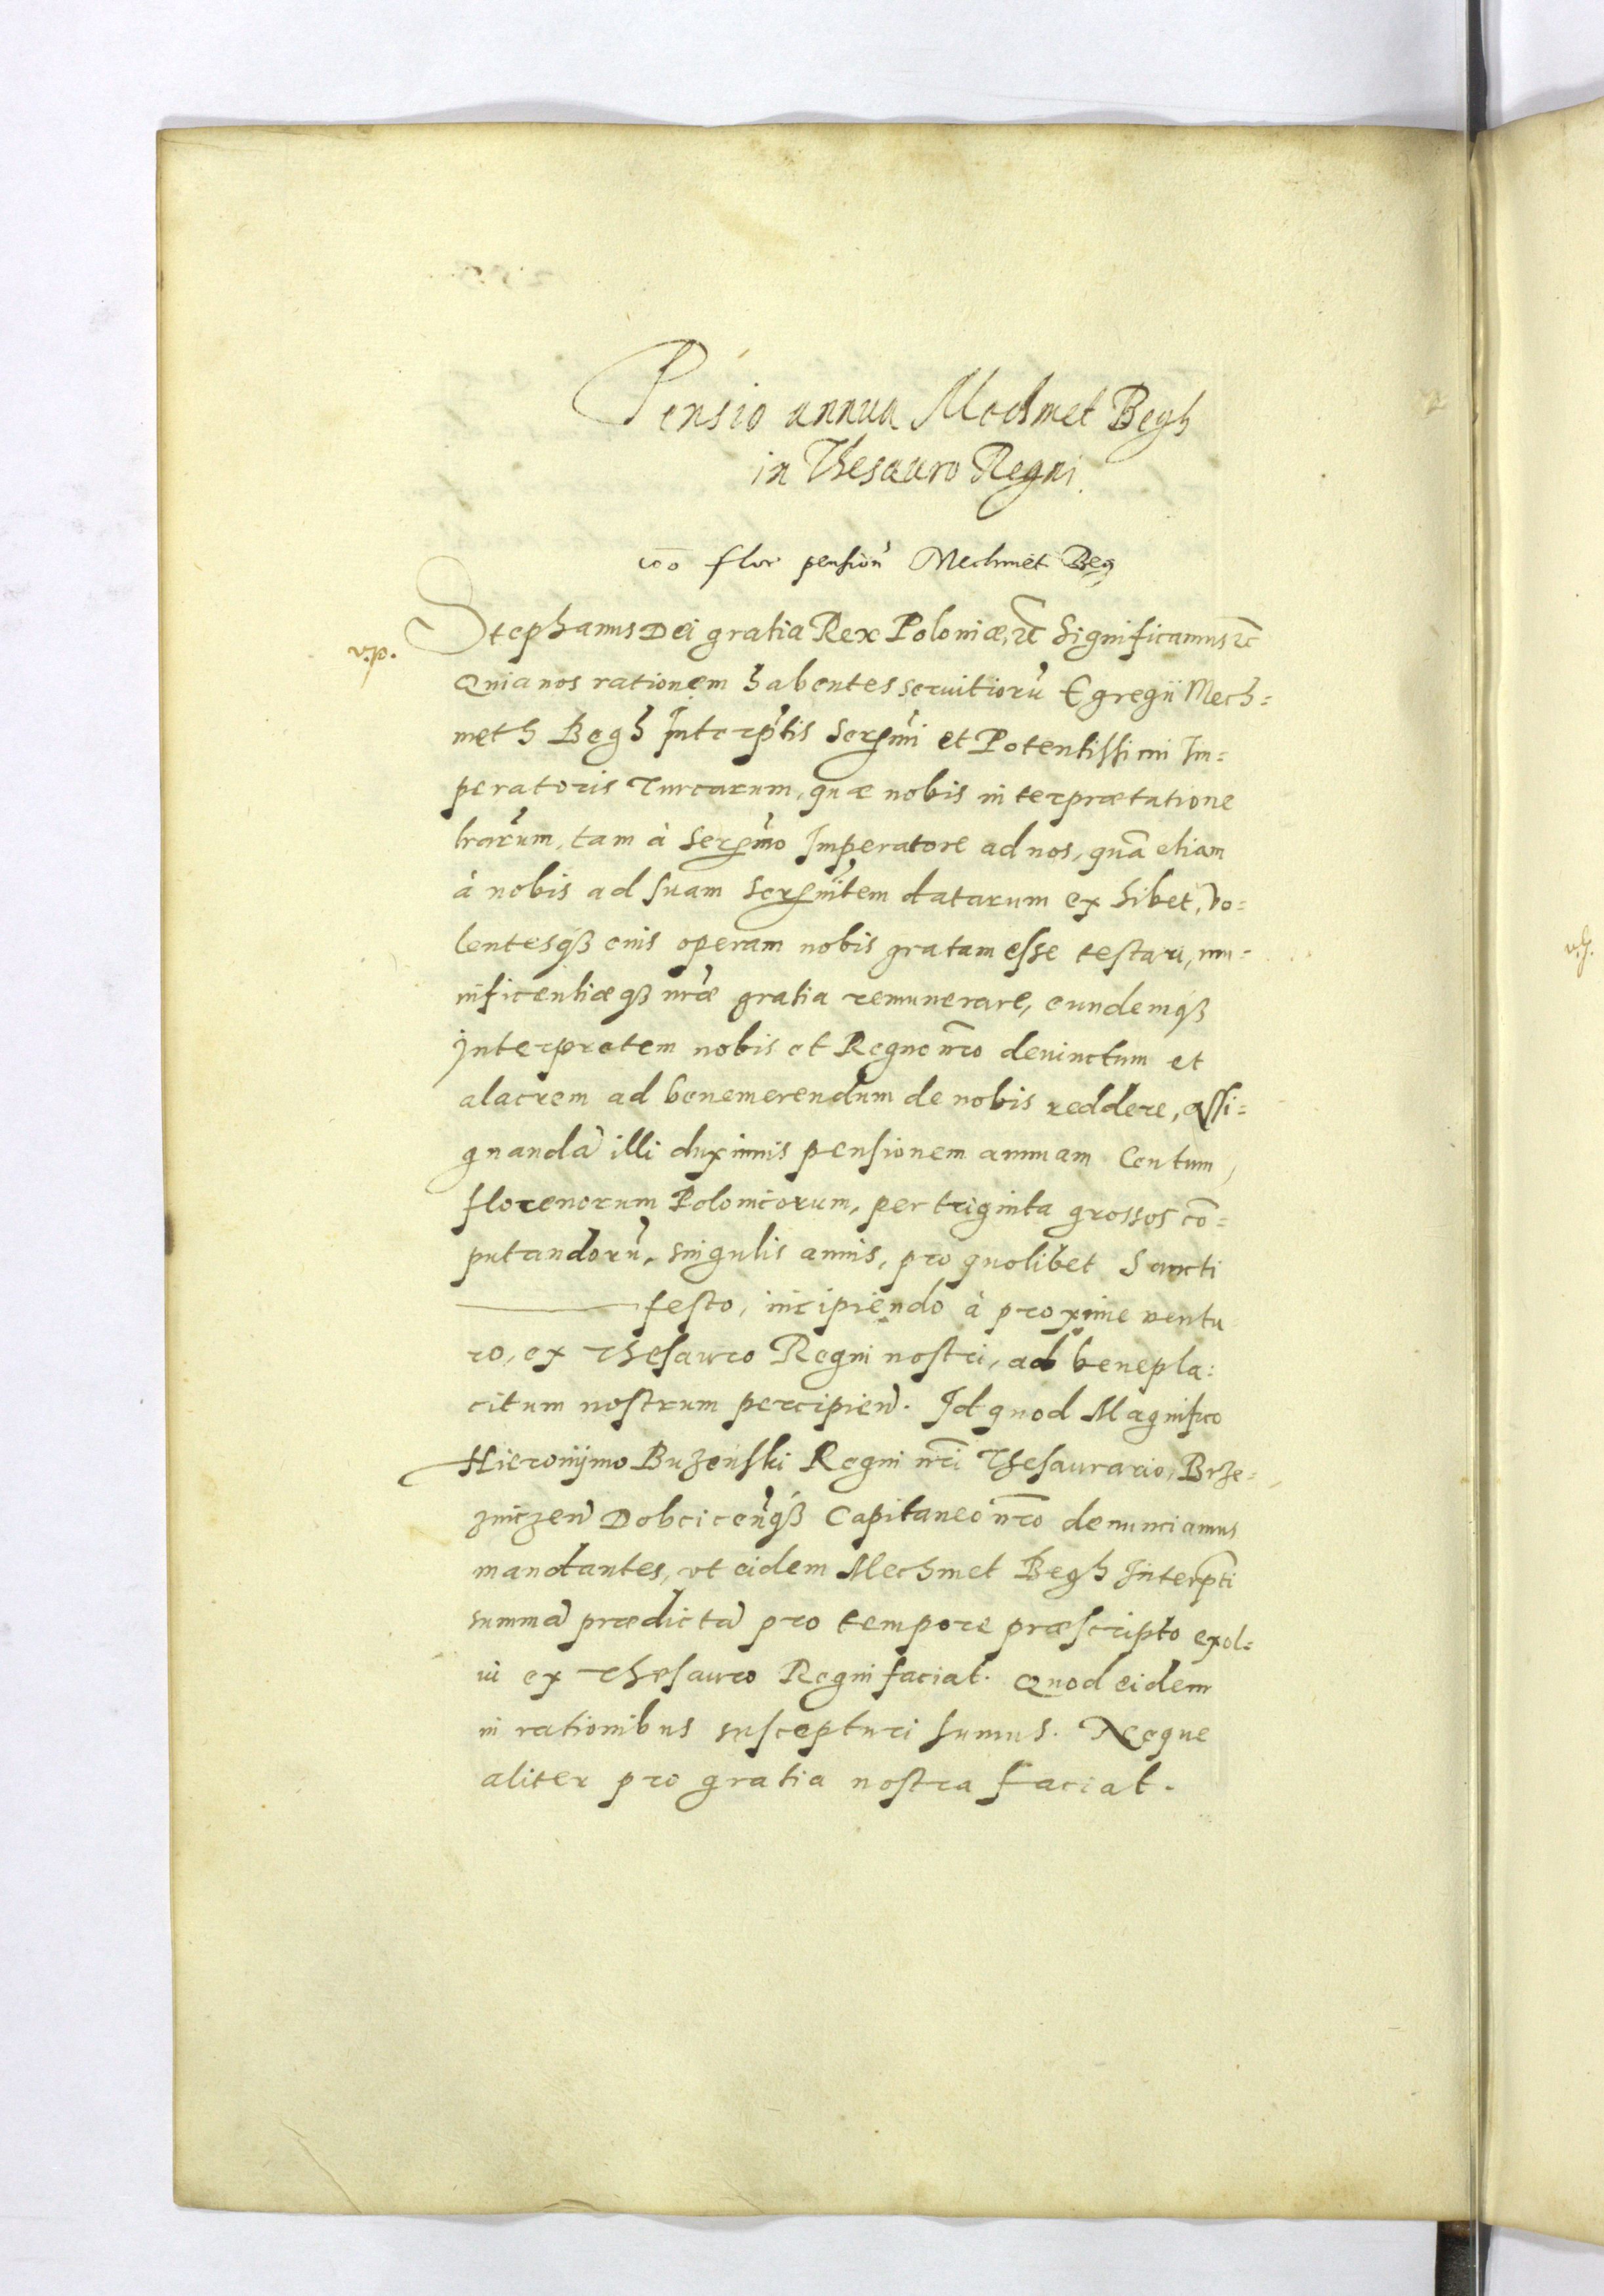 Pensio annua Mechmet Begh
in Thesauro Regni.
flor pension̄ Mechmet Beg
Stephanus Dei gratia Rex Poloniæ, ꝛc̄ Significamus ꝛc̄
v.p.
Quia nos rationem habentes seruitiorū Egregii Mech=
meth Begh Interp̄tis Serm̄i et Potentissimi Im=
peratoris Turcarum, quæ nobis in terprætatione
lrarum, tam à Sermo Imperatore ad nos, quā etiam
à nobis ad suam Sermtem datarum exhibet, vo=
lentesqꝫ eius operam nobis gratam esse testari, mu=
nificentiæqꝫ nr̄æ gratia remunerare, eundemqꝫ
Interpretem nobis et Regno nr̄o deuinctum et
alacrem ad benemerendum de nobis reddere, assi=
gnandā illi duximus pensionem annuam Centum
florenorum Polonicorum, per triginta grossos cō=
putandorū, singulis annis, pro quolibet Sancti
festo, incipiendo à proxime ventu
ro, ex Thesauro Regni nostri, ad benepla:
citum nostrum percipien̄. Id quod Magnifico
Hieronymo Buzenski Regni nr̄i Thesaurario, Brze=
zniczen̄ Dobcicen̄qꝫ Capitaneo nr̄o denunciamus
mandantes, vt eidem Mechmet Begh Interp̄ti
summā prædictā pro tempore præscripto exol=
ui ex Thesauro Regni faciat. Quod eidem
in rationibus suscepturi sumus. Neque
aliter pro gratia nostra faciat.